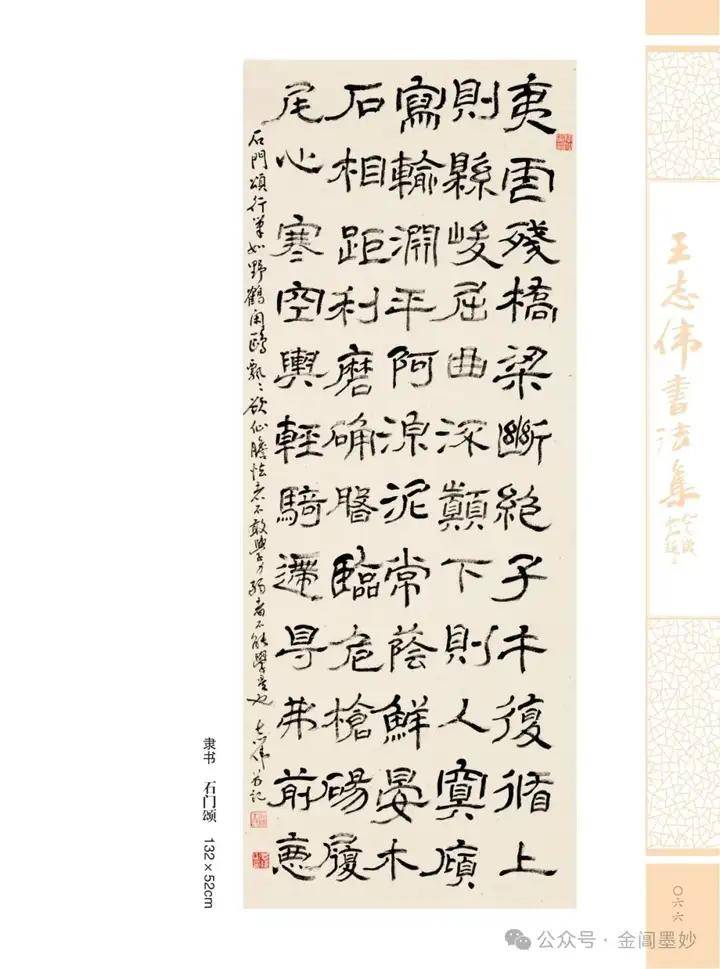 夷虐殘橋梁斷絕子午復循上
則縣峻屈曲流顛下則入冥廎
寫輸淵平阿涼泥常蔭鮮晏木
石相距利磨确臨危槍碭履
尾心寒空輿輕騎遰导弗前惡
石門頌行筆如野鶴閑鷗飄〻欲仙膽怯者不敢學力弱者不能學是也 志伟
隶书 石门颂 132×52cm
王志伟书法集
〇六六
公众号·金阊墨妙